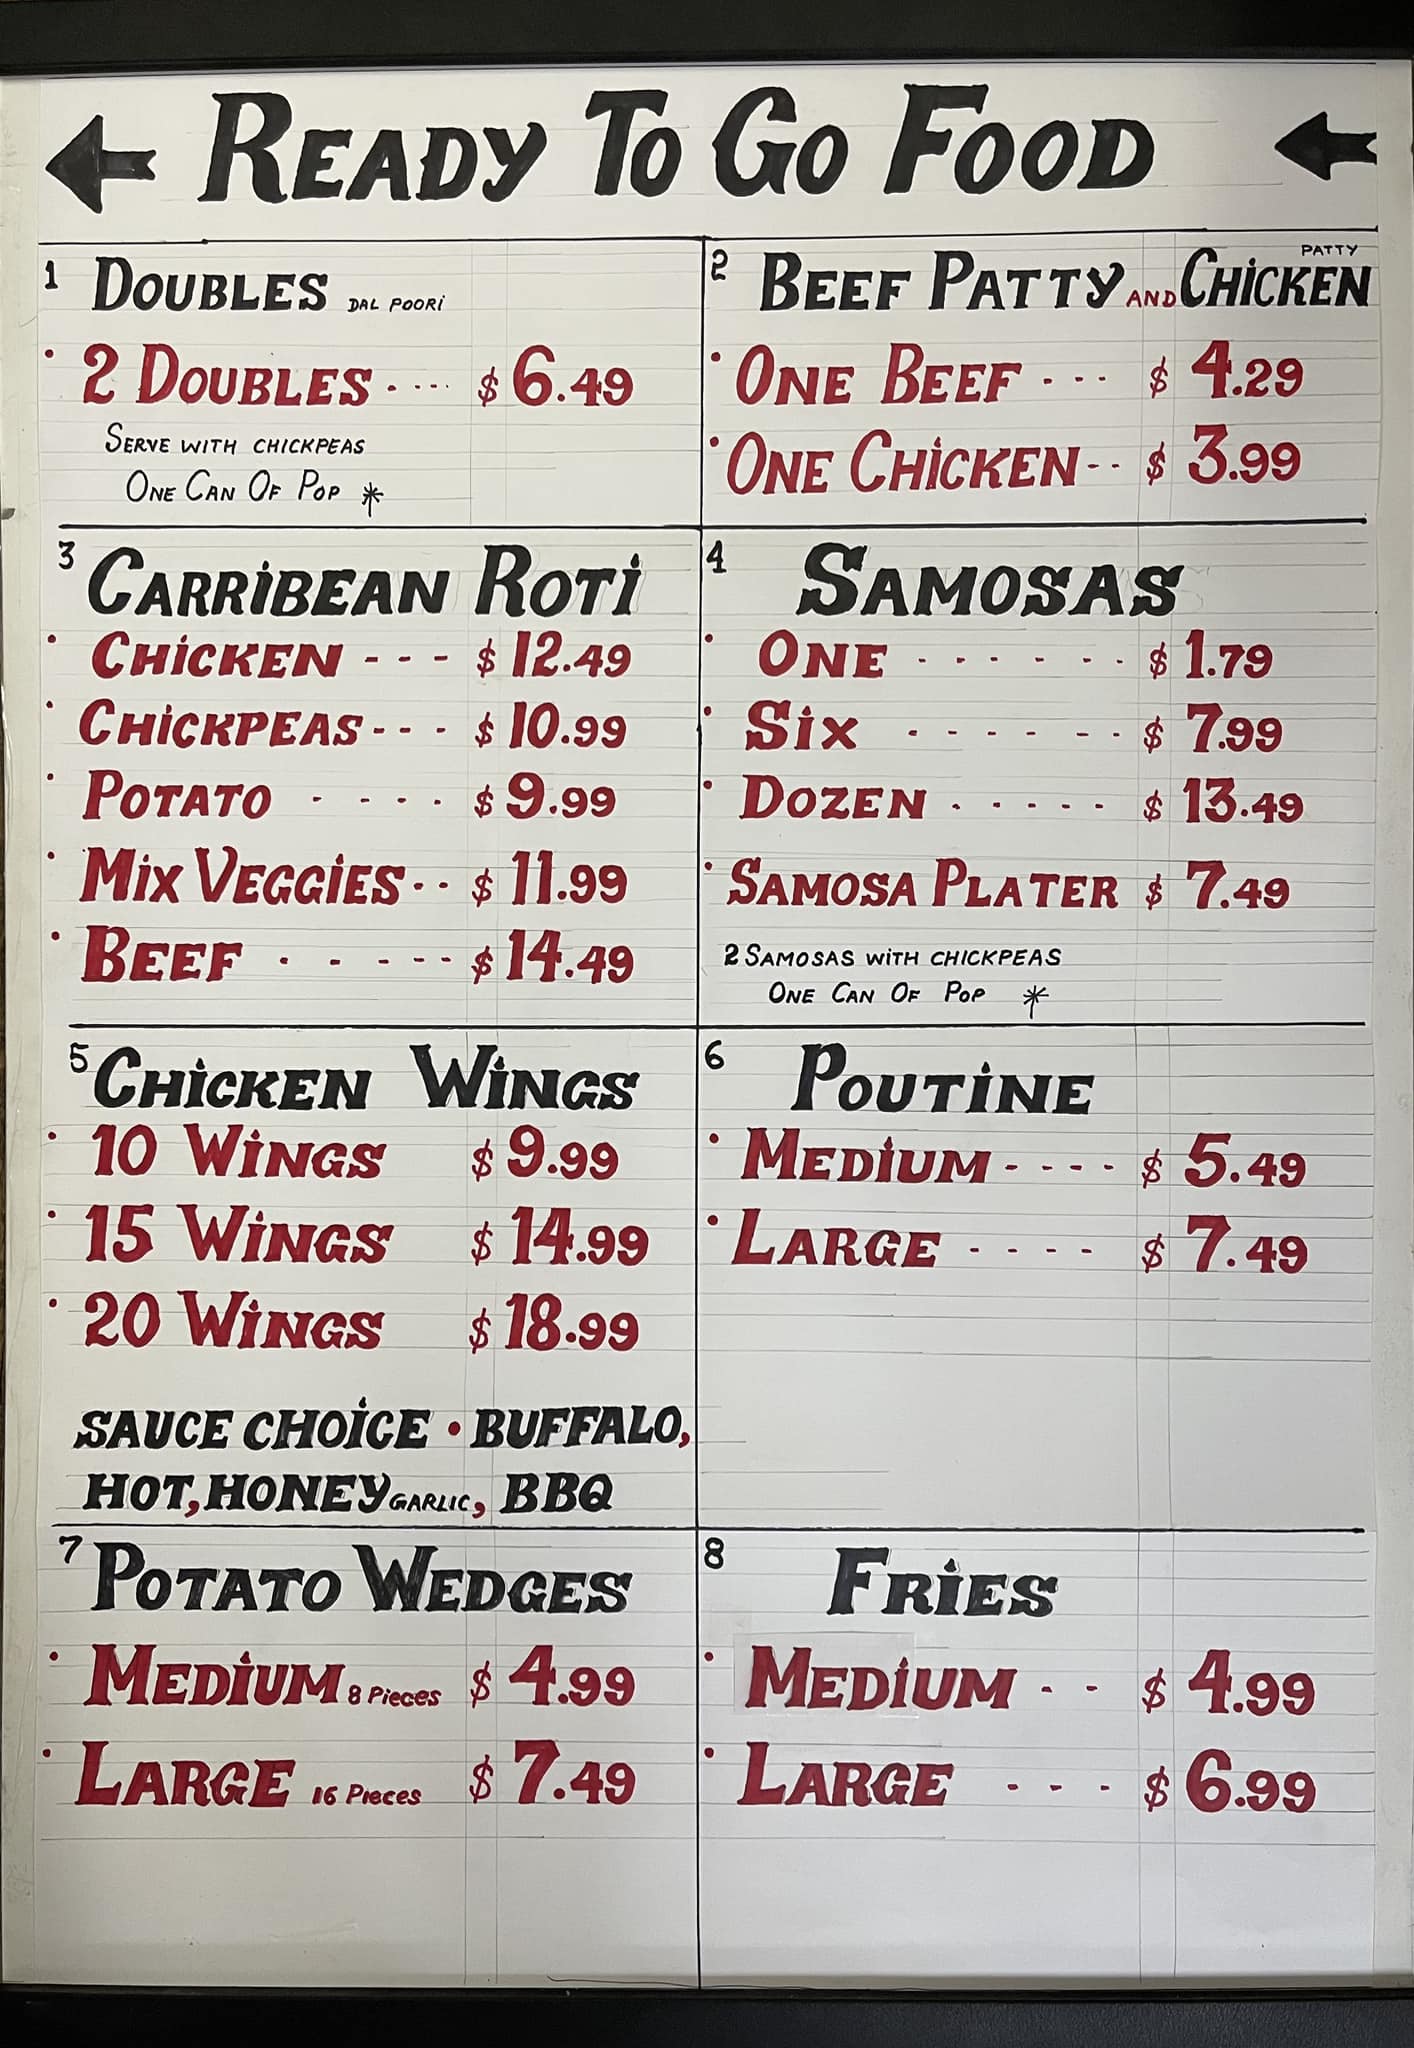 READY TO GO FOOD
1 DOUBLES DAL POORI
• 2 DOUBLES - --- $ 6.49
SERVE WITH CHICKPEAS
ONE CAN OF POP *
2 BEEF PATTY AND CHICKEN PATTY
• ONE BEEF --- $ 4.29
• ONE CHICKEN -- $ 3.99
3 CARRIBEAN ROTI
• CHICKEN --- $ 12.49
• CHICKPEAS --- $ 10.99
• POTATO ---- $ 9.99
• MIX VEGGIES -- $ 11.99
• BEEF ----- $ 14.49
4 SAMOSAS
• ONE ------ $ 1.79
• SIX ------ $ 7.99
• DOZEN ----- $ 13.49
• SAMOSA PLATER $ 7.49
2 SAMOSAS WITH CHICKPEAS
ONE CAN OF POP *
5 CHICKEN WINGS
• 10 WINGS $ 9.99
• 15 WINGS $ 14.99
• 20 WINGS $ 18.99
SAUCE CHOICE • BUFFALO,
HOT, HONEY GARLIC, BBQ
6 POUTINE
• MEDIUM ---- $ 5.49
• LARGE ---- $ 7.49
7 POTATO WEDGES
• MEDIUM 8 Pieces $ 4.99
• LARGE 16 Pieces $ 7.49
8 FRIES
• MEDIUM -- $ 4.99
• LARGE --- $ 6.99